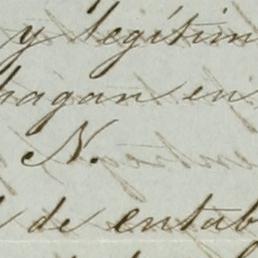 y legítim
hagan en
N.
de entab